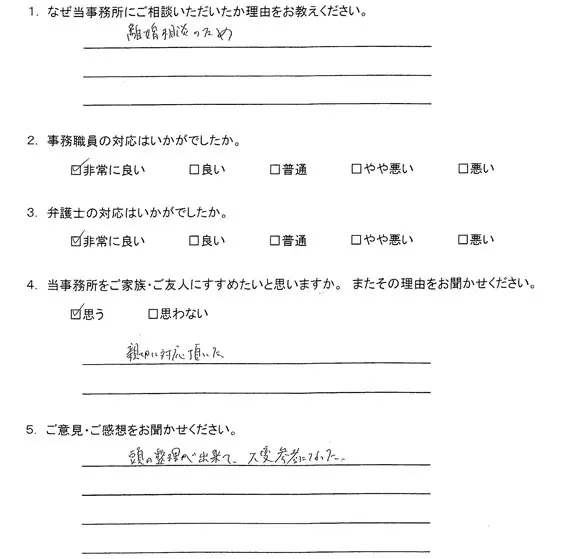 1. なぜ当事務所にご相談いただいたか理由をお教えください。
離婚相談のため
2. 事務職員の対応はいかがでしたか。
☑非常に良い □良い □普通 □やや悪い □悪い
3. 弁護士の対応はいかがでしたか。
☑非常に良い □良い □普通 □やや悪い □悪い
4. 当事務所をご家族・ご友人にすすめたいと思いますか。 またその理由をお聞かせください。
☑思う □思わない
親切に対応頂いた
5. ご意見・ご感想をお聞かせください。
頭の整理が出来て、大変参考になった。